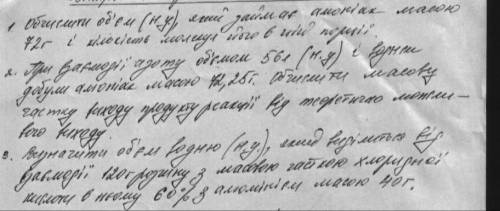 1. Обчислити об'єм (н.у), який займає амоніак масою
72 г і кількість молекул його в цій порції.
2. При взаємодії азоту об'ємом 56 л (н.у) і водню
добули амоніак масою 72,25 г. Обчислити масову
частку виходу продукту реакції від теоретично можли-
вого виходу.
3. Визначити об'єм водню (н.у.), який виділиться від
взаємодії 120 г розчину з масовою часткою хлоридної
кислоти в ньому 60% з алюмінієм масою 40 г.